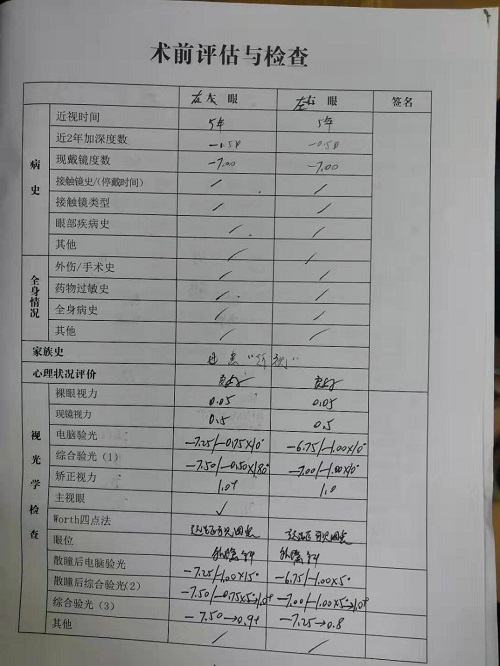 术前评估与检查
眼 眼 签名
病史
近视时间 5年 5年
近2年加深度数 -0.50 -0.50
现戴镜度数 -7.00 -7.00
接触镜史/(停戴时间) / /
接触镜类型 / /
眼部疾病史 / /
其他 / /
全身情况
外伤/手术史 / /
药物过敏史 / /
全身病史 / /
其他 / /
家族史
心理状况评价 良好 良好
视光学检查
裸眼视力 0.05 0.05
现镜视力 0.5 0.5
电脑验光 -7.25/-0.75×10° -6.75/-1.00×10°
综合验光(1) -7.50/-0.50×180° -7.00/-1.00×10°
矫正视力 1.0+ 1.0
主视眼 ✓
Worth四点法
眼位 外隐斜 外隐斜
散瞳后电脑验光 -7.25/-1.00×15° -6.75/-1.00×5°
散瞳后综合验光(2) -7.50/-0.75×5°→1.0+ -7.00/-1.00×5→1.0+
综合验光(3) -7.50→0.9+ -7.25→0.8
其他 / /